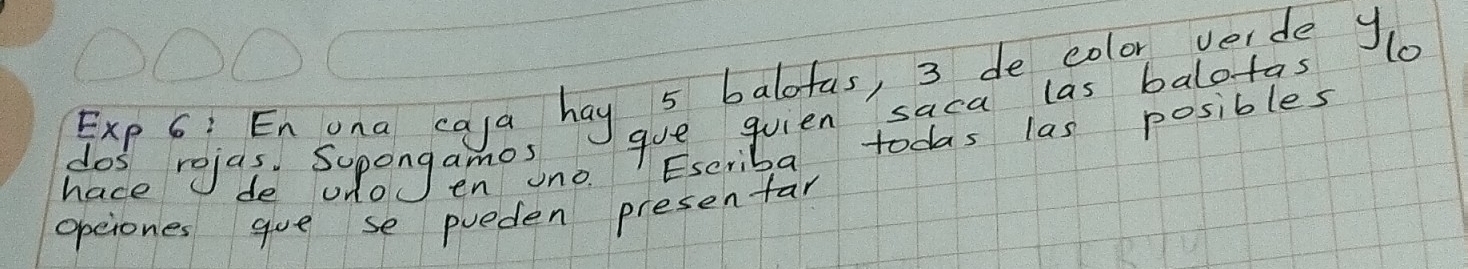 Exp 6: En una caja hay 5 balotas, 3 de color verde y
dos rojas. Supongamos que quien saca las balotas lo
hace de uno en uno. Escriba todas las posibles
opciones que se pueden presentar